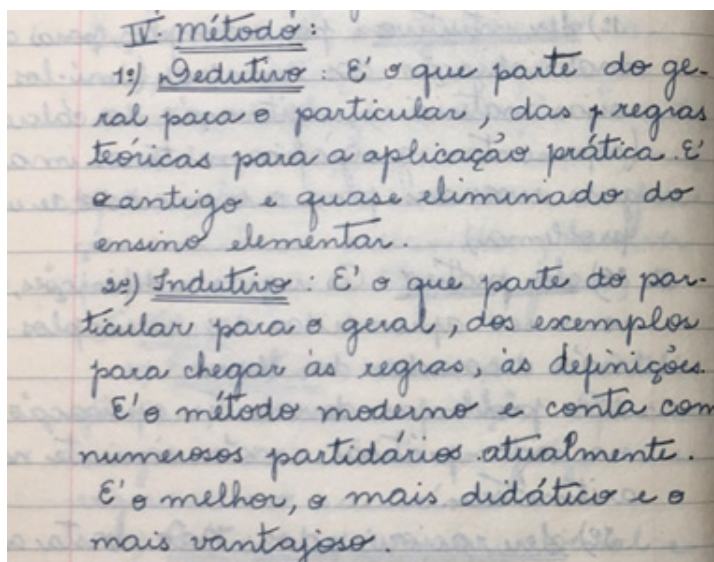 IV. Método:
1º) Dedutivo: E' o que parte do ge-
ral para o particular, das regras
teóricas para a aplicação prática. E'
o antigo e quase eliminado do
ensino elementar.
2º) Indutivo: E' o que parte do par-
ticular para o geral, dos exemplos
para chegar às regras, às definições.
E' o método moderno e conta com
numerosos partidários atualmente.
E' o melhor, o mais didático e o
mais vantajoso.